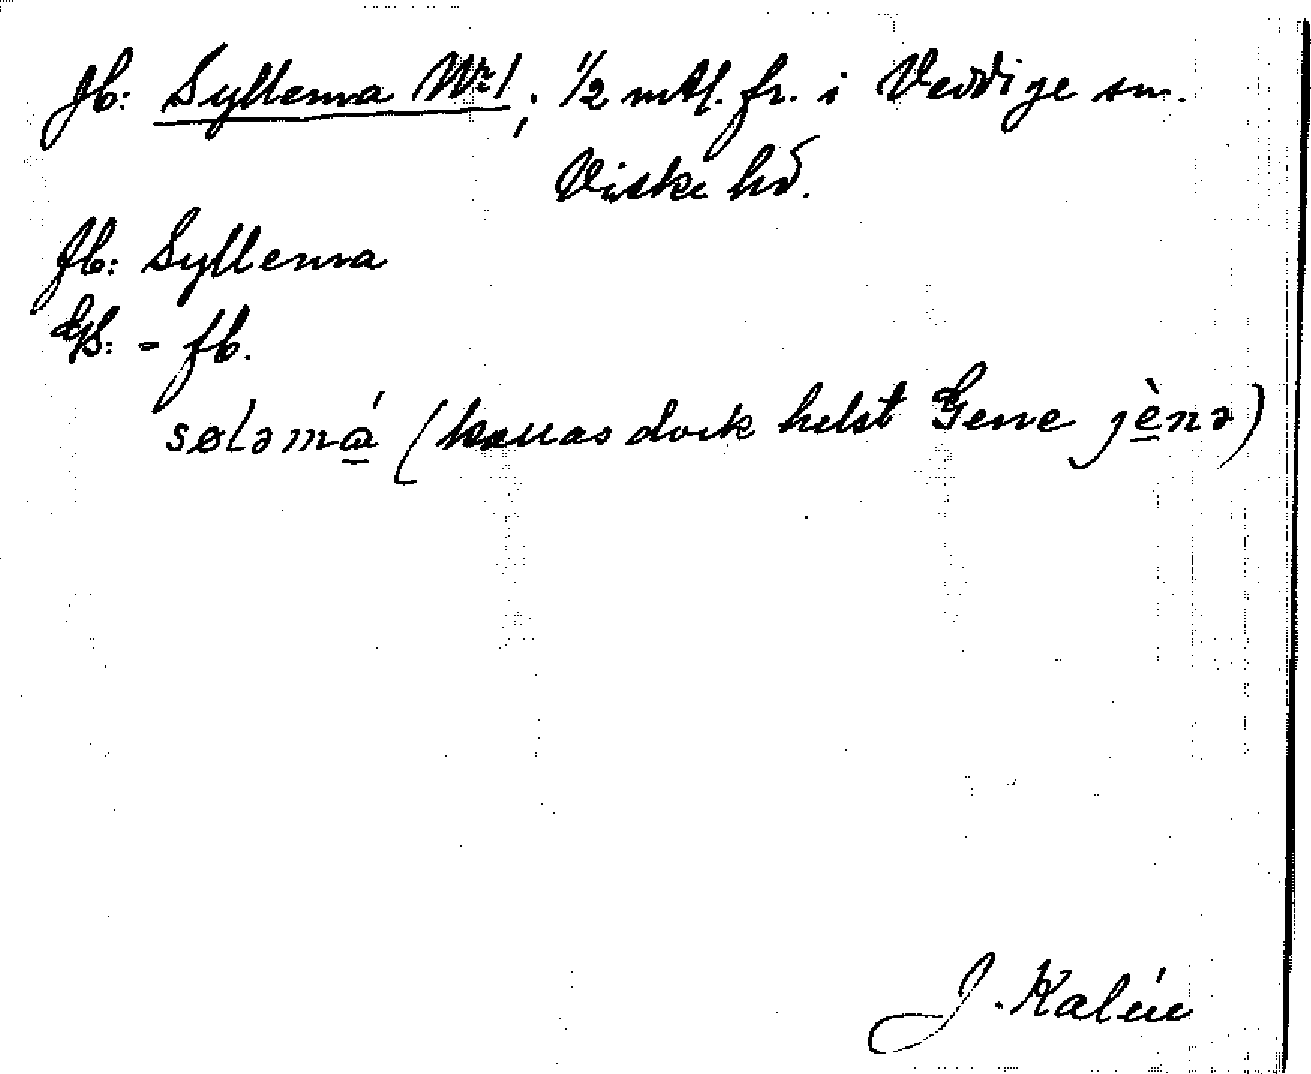 Jb: Syllema Nr 1; 1/2 mtl. fr. i Veddige sn.
Viske hd.
fb: Syllema
Gb: = fb.
søləmá (kallas dock helst Gene jènə)
J. Kalén